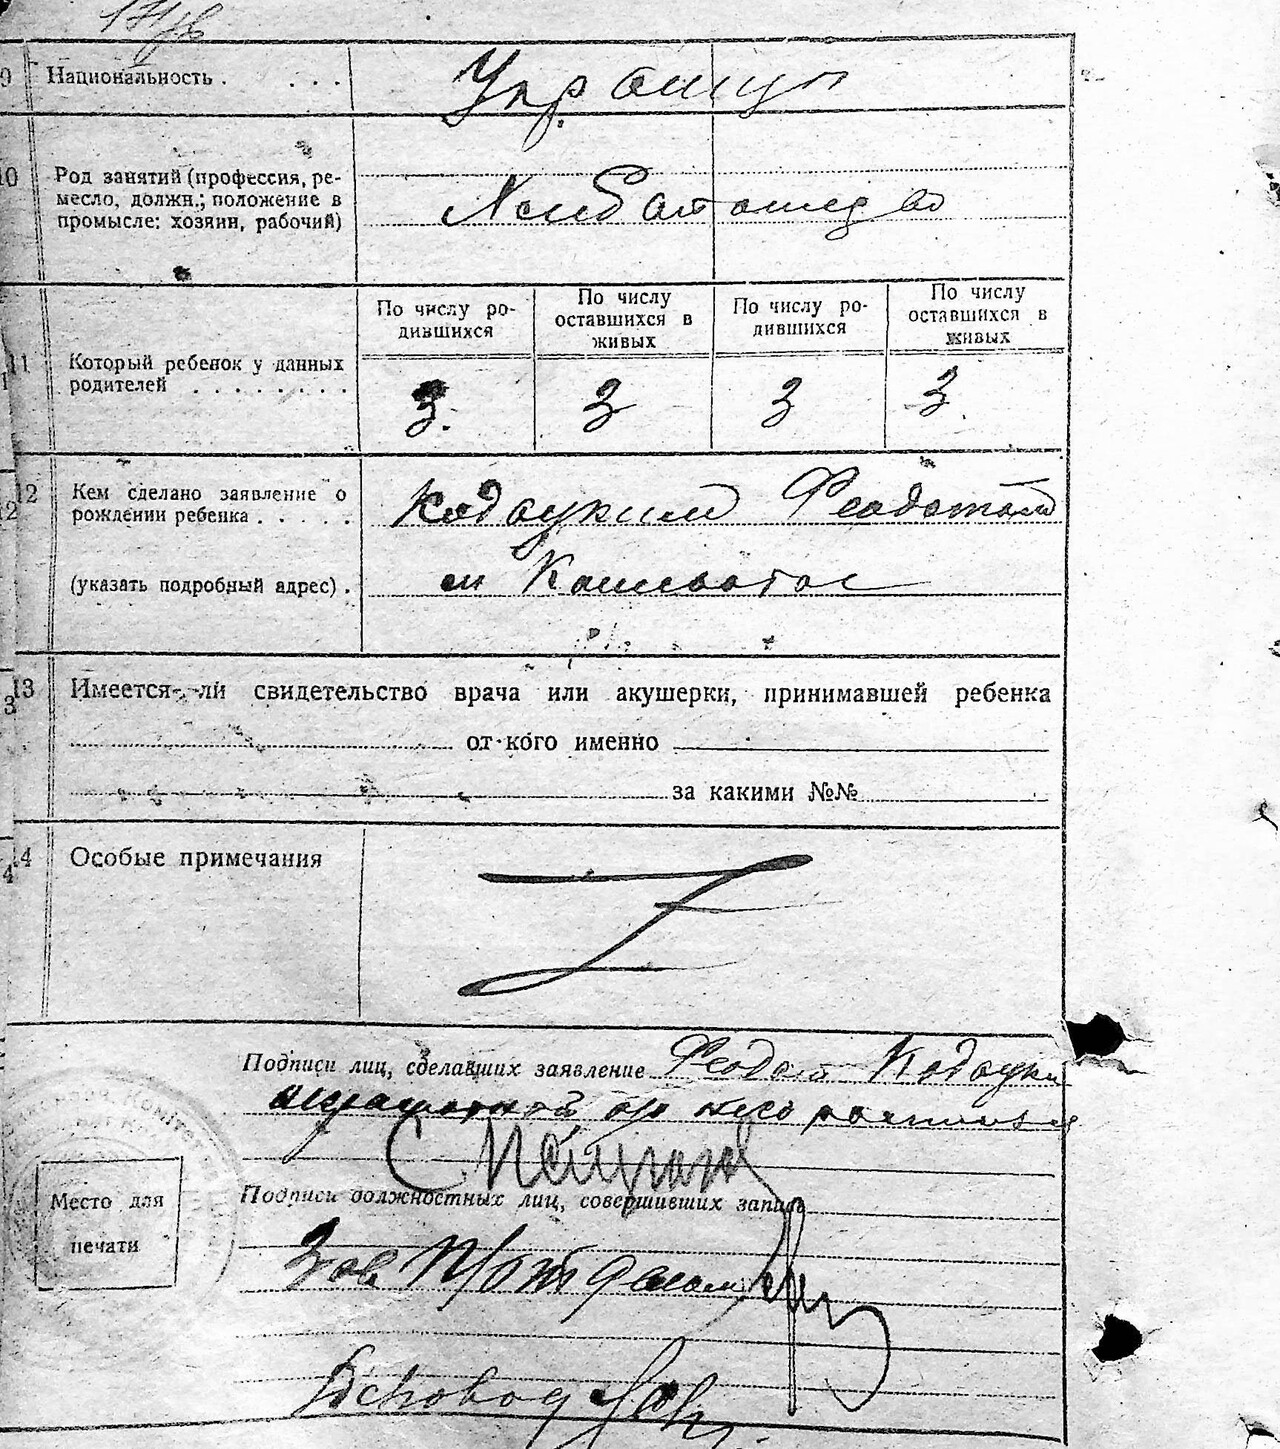 9 Национальность . . . .
Украинцы
10 Род занятий (профессия, ре-
месло, должн.; положение в
промысле: хозяин, рабочий)
Хлебопашество
По числу ро-
дившихся
По числу
оставшихся в
живых
По числу ро-
дившихся
По числу
оставшихся в
живых
11 Который ребенок у данных
родителей . . . . . . . .
3. 3 3 3.
12 Кем сделано заявление о
рождении ребенка . . . . .
Феодотом
(указать подробный адрес) .
13 Имеется-ли свидетельство врача или акушерки, принимавшей ребенка
от кого именно
за какими №№
14 Особые примечания
Подписи лиц, сделавших заявление Феодот
неграмотный
Подписи должностных лиц, совершивших запись
Место для
печати
Зав